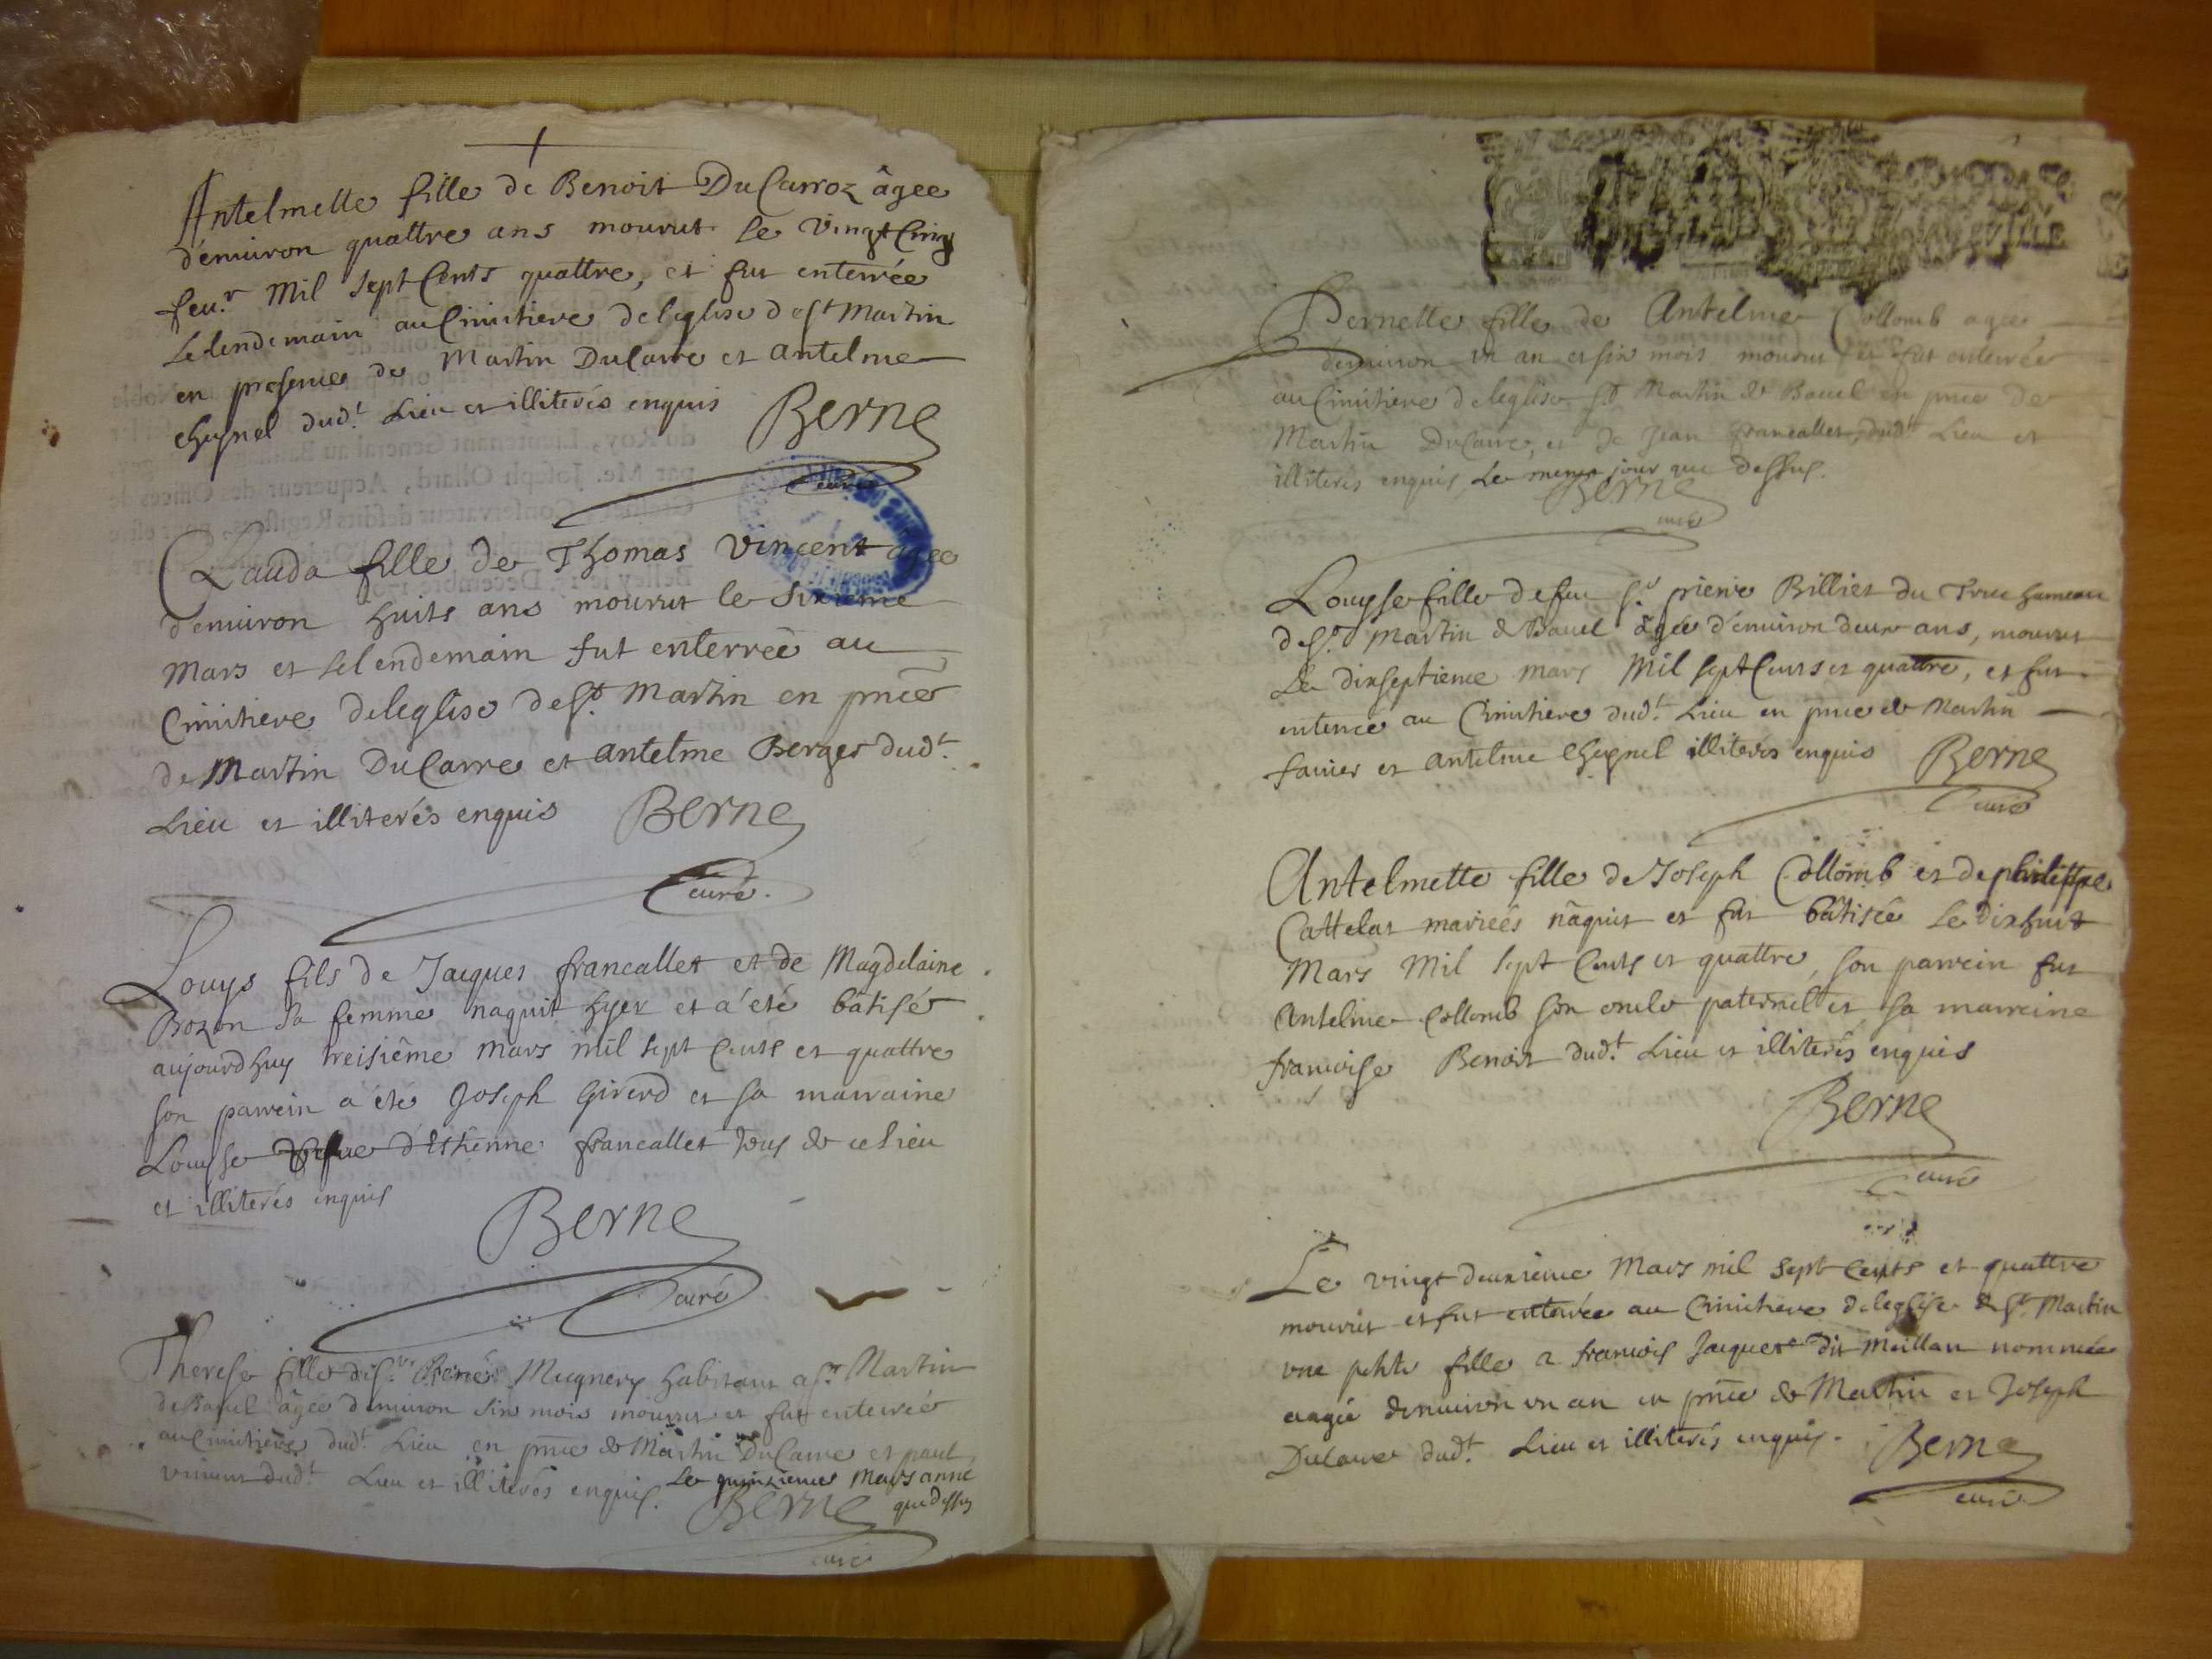 Antelmette fille de Benoit DuCarroz âgee
d'enuiron quattre ans mourut le vingt Cinq
feu.r Mil sept Cents quattre, et fut enterrée
Le lendemain au Cimitiere de leglise de st Martin
en presence de Martin DuCarre et antelme
Chegnel dud.t Lieu et illiterés enquis
Berne
curé
Clauda fille de Thomas Vincent agee
d'enuiron huits ans mourut le Sixieme
Mars et le lendemain fut enterreé au
Cimitiere de leglise de St. Martin en pnce
de Martin DuCarre et antelme Berger dud.t
Lieu et illiterés enquis Berne
curé.
Louys fils de Jacques francallet et de Magdelaine
Bozon sa femme naquit hyer et a été bâtisé
aujourdhuy treisiême mars mil sept Cents et quattre
son parrein a été Joseph Girerd et sa marraine
Louyse d'Ethienne francallet tous de ce lieu
et illiterés enquis
Berne
curé
Therese fille de sr. Mugnery habitant a st. Martin
de Bauel âgée d'enuiron six mois mourut et fut enterreé
au Cimitiere dud.t Lieu en pnce de Martin DuCarre et paul
vincent dud.t Lieu et illiterés enquis. Le quinzieme Mars anné
que dessus
Berne
curé
Pernette fille de Antelme Collomb agee
d'enuiron vn an et six mois mourut et fut enterrée
au Cimitiere de leglise St Martin de Bauel en pnce de
Martin DuCarre, et de Jean francallet, dud.t Lieu et
illiterés enquis, Le meme jour que dessus.
Berne
curé
Louyse fille de feu sr. pierre Billiet du Truc hameau
de St. Martin de Bauel âgée d'enuiron deux ans, mourut
Le dixseptieme mars Mil sept Cents et quattre, et fut
enterrée au Cimitiere dud.t Lieu en pnce de Martin
fauier et antelme Chegnel illiterés enquis Berne
curé
Antelmette fille de Joseph Collomb et de philippe
Cattelat marieés nâquit et fut bâtisée le dixhuit
Mars Mil sept Cents et quattre, son parrein fut
Antelme Collomb son oncle paternel et sa marreine
francoise Benoit dud.t Lieu et illiterés enquis
Berne
curé
Le vingt deuxieme Mars mil sept Cents et quattre
mourut et fut enterrée au Cimitiere de leglise de St. Martin
vne petite fille a francois Jaquet dit Meillan nommée
aagée denuiron vn an en pnce de Martin et Joseph
DuCarre dud.t Lieu et illiterés enquis. Berne
curé